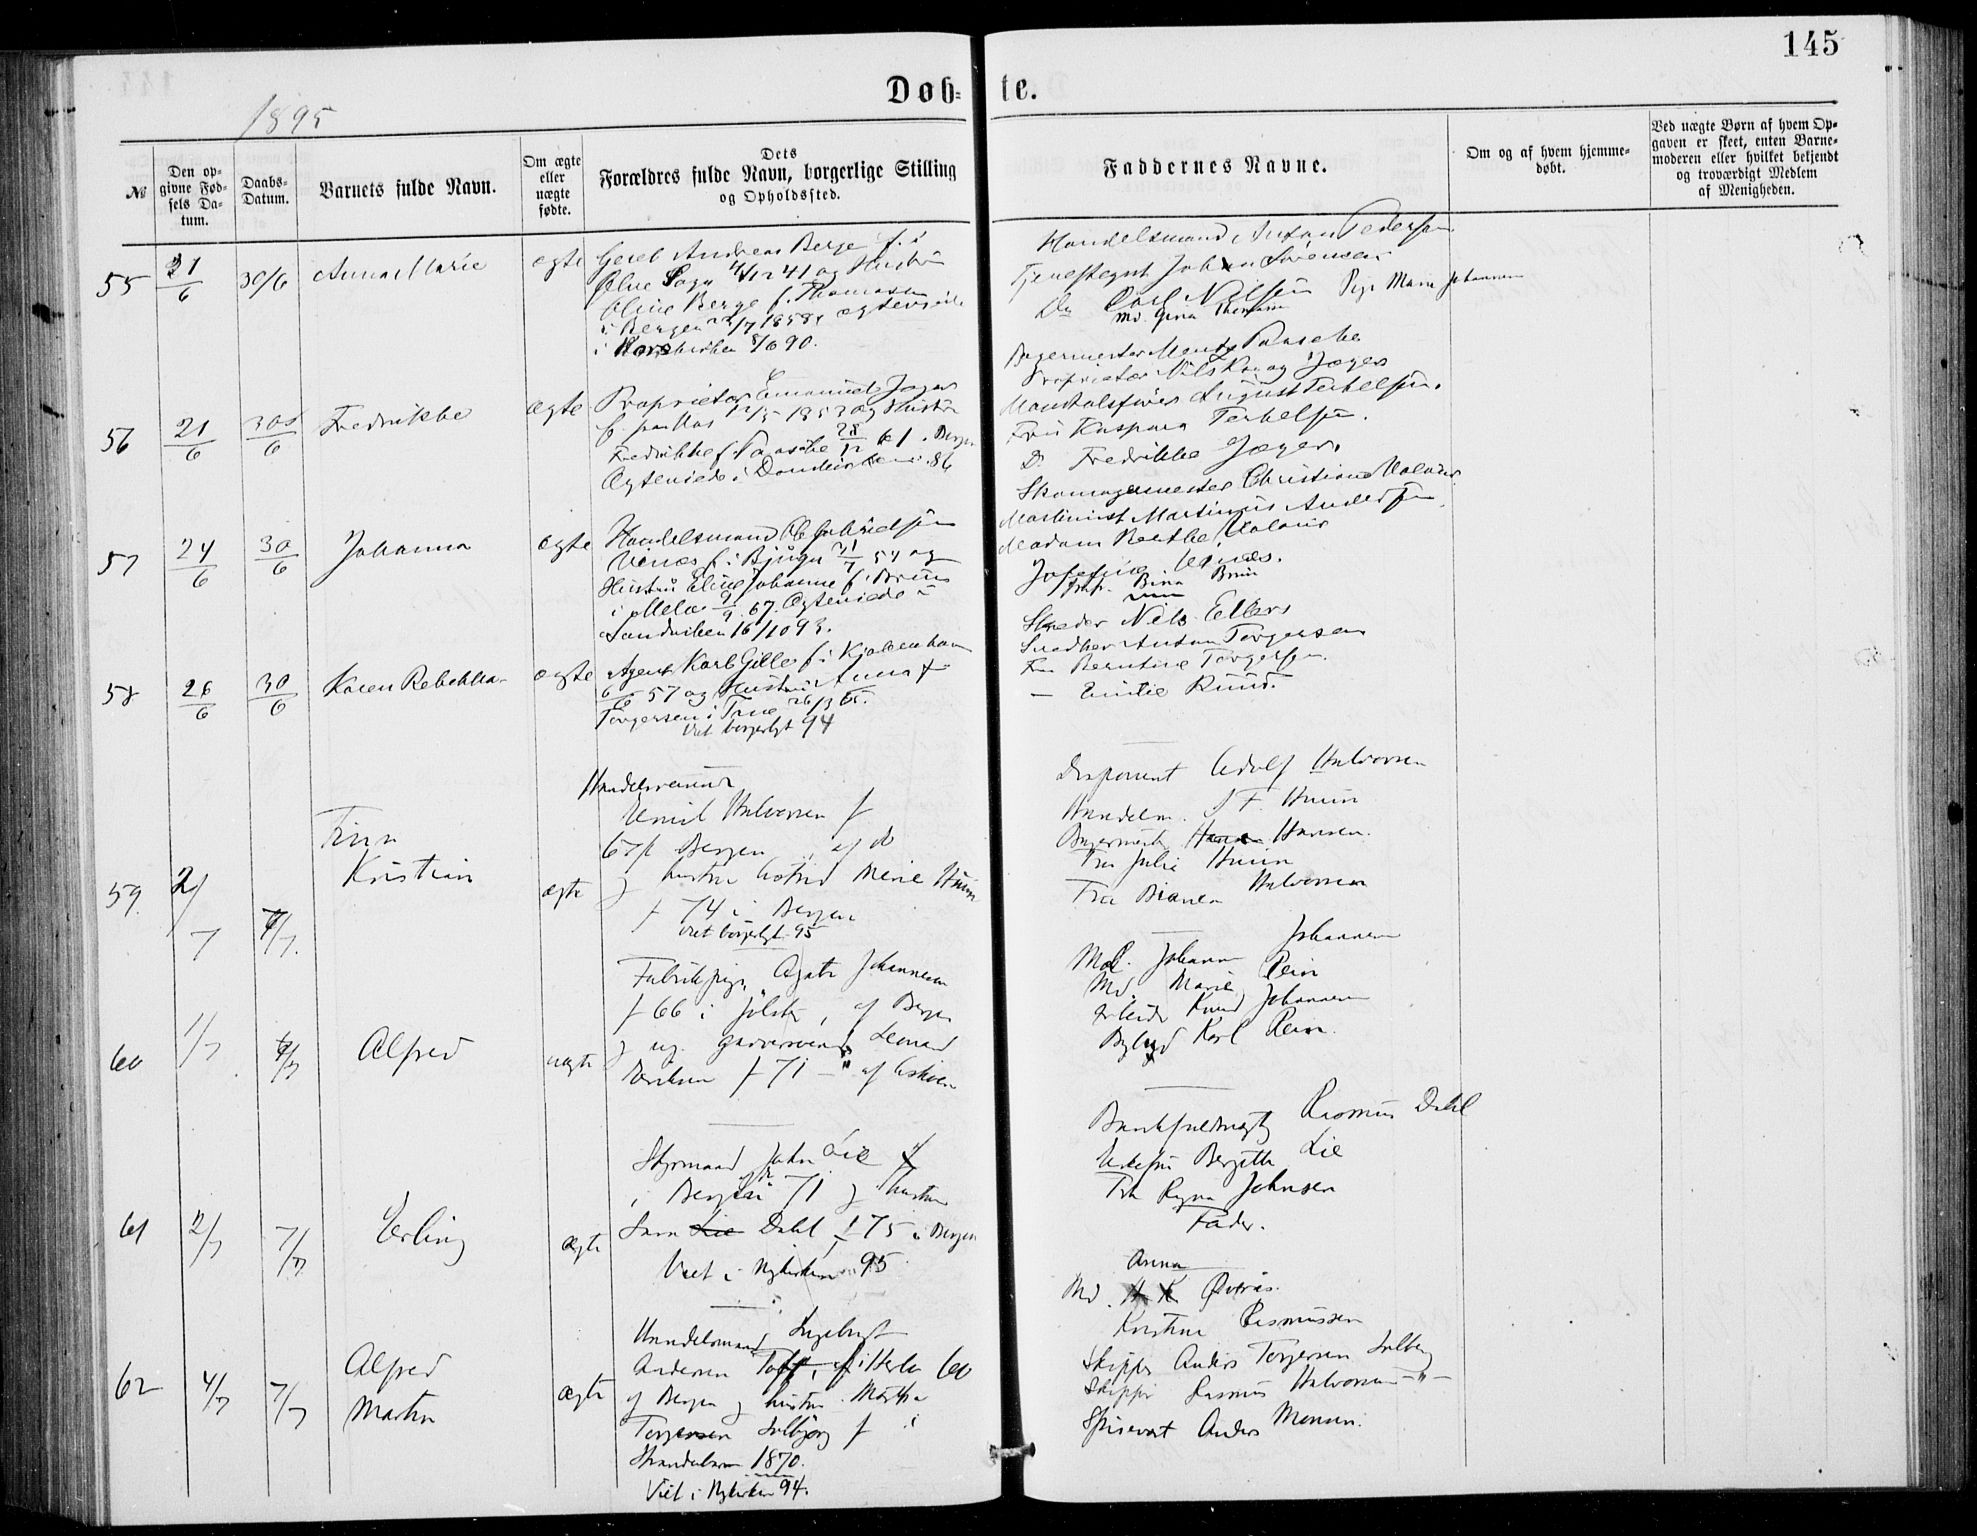 145
Døb-
te.
1895
№
Den op-
givne Fød-
sels Da-
tum.
Daabs-
Datum.
Barnets fulde Navn.
Om ægte
eller
uægte
fødte.
Dets
Forældres fulde Navn, borgerlige Stilling
og Opholdssted.
Faddernes Navne.
Om og af hvem hjemme-
døbt.
Ved uægte Børn af hvem Op-
gaven er skeet, enten Barne-
moderen eller hvilket bekjendt
og troværdigt Medlem
af Menigheden.
55
21/6
30/6
Anna Marie
ægte
Andreas Berge f. i
Ølve Sogn 4/12 41 og Hustru
Oline Berge f. Thomasen
i Bergen 22/7 1858, ægteviede
i Korskirken 8/6 90.
Handelsmand Anton Pedersen
Tjenestegut Johan Sörensen
Do Carl Nilsen Pige Marie Johannesen
Md. Gina Thomasen
56
21/6
30/6
Fredrikke
ægte
Proprietær Emanuel Jæger
f. paa Vos 12/5 1853 og Hustru
Fredrikke f. Paasche 28/12 61 i Bergen
Ægteviede i Domkirken 86
Bagermester Mentz Paasche
Proprietær Nils Krag Jæger
August Terkelsen.
Fru Kaspara Terkelsen.
D. Fredrikke Jæger.
57
24/6
30/6
Johanna
ægte
Handelsmand Ole Gabrielsen
Vinæs f. i Bjugn 31/7 54 og
Hustru Eline Johanne f. Bruun
i Melø 9/9 67. Ægteviede i
Sandviken 16/10 93.
Skomagermester Christian Valvær
Maskinist Martinus Andersen
Madam Berthe Valvær
Josefine Vinæs.
Frk. Bina Bruun
58
26/6
30/6
Karen Rebekka
ægte
Agent Karl Gilles f. i Kjøbenhavn
6/6 57 og Hustru Anna f.
Torgersen i 26/3 65.
Viet borgerligt 94
Skræder Nils Ellers
Snedker Anton Torgersen
Fru Berntine Torgersen.
— Emilie Ruud.
59
2/7
7/7.
Finn
Kristian
ægte
Handelsreisende
Emil Halvorsen f
67 i Bergen af do
g hustru Astrid Marie Huun
f 74 i Bergen
Viet borgerligt 95
Disponent Adolf Halvorsen
Handelsm. J F. Huun
Bagermester Hansen.
Fru Julie Huun
Fru Bianca Halvorsen
60
1/7
7/7
Alfred
uægte
Fabrikpige Agate Johannesen
f 66 i Jølster, af Bergen
g ug. garversvend Leonard
Eriksen f 71 – af Askøen
Md. Johanne Johannesen
Md. Marie Rein
Arbeider Knud Johannesen
Bybud Karl Rein.
61
2/7
7/7
Erling
ægte
Styrmand John Lie f
i Bergen 71 g hustru
Sara Lie Dahl f 75 i Bergen
Viet i Nykirken 95
Bankfuldmægtig Rasmus Dahl
Enkefru Bergitte Lie
Fru Ragna Johnsen
Fader.
62
4/7
7/7
Alfred
Martin
ægte
Handelsmand Ingebrigt
Andersen Toft, f i Herlø 60
af Bergen g hustru Martha
Torgersen Solbjørg f i
Strandebarm 1870.
Viet i Nykirken 94.
Anna
Md. Øvrås.
Kristine Rasmussen
Skipper Anders Torgersen Solberg
Skipper Rasmus Halvorsen –"–
Spisevert Anders Monsen.